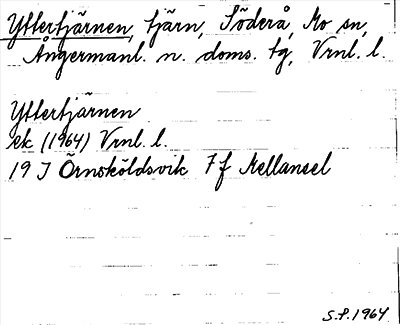 Yttertjärnen, tjärn, Söderå, Mo sn,
Ångermanl. n. doms. tg, Vrnl. l.
Yttertjärnen
ek (1964) Vrnl. l.
19 J Örnsköldsvik 7 f Mellansel
S.P. 1964